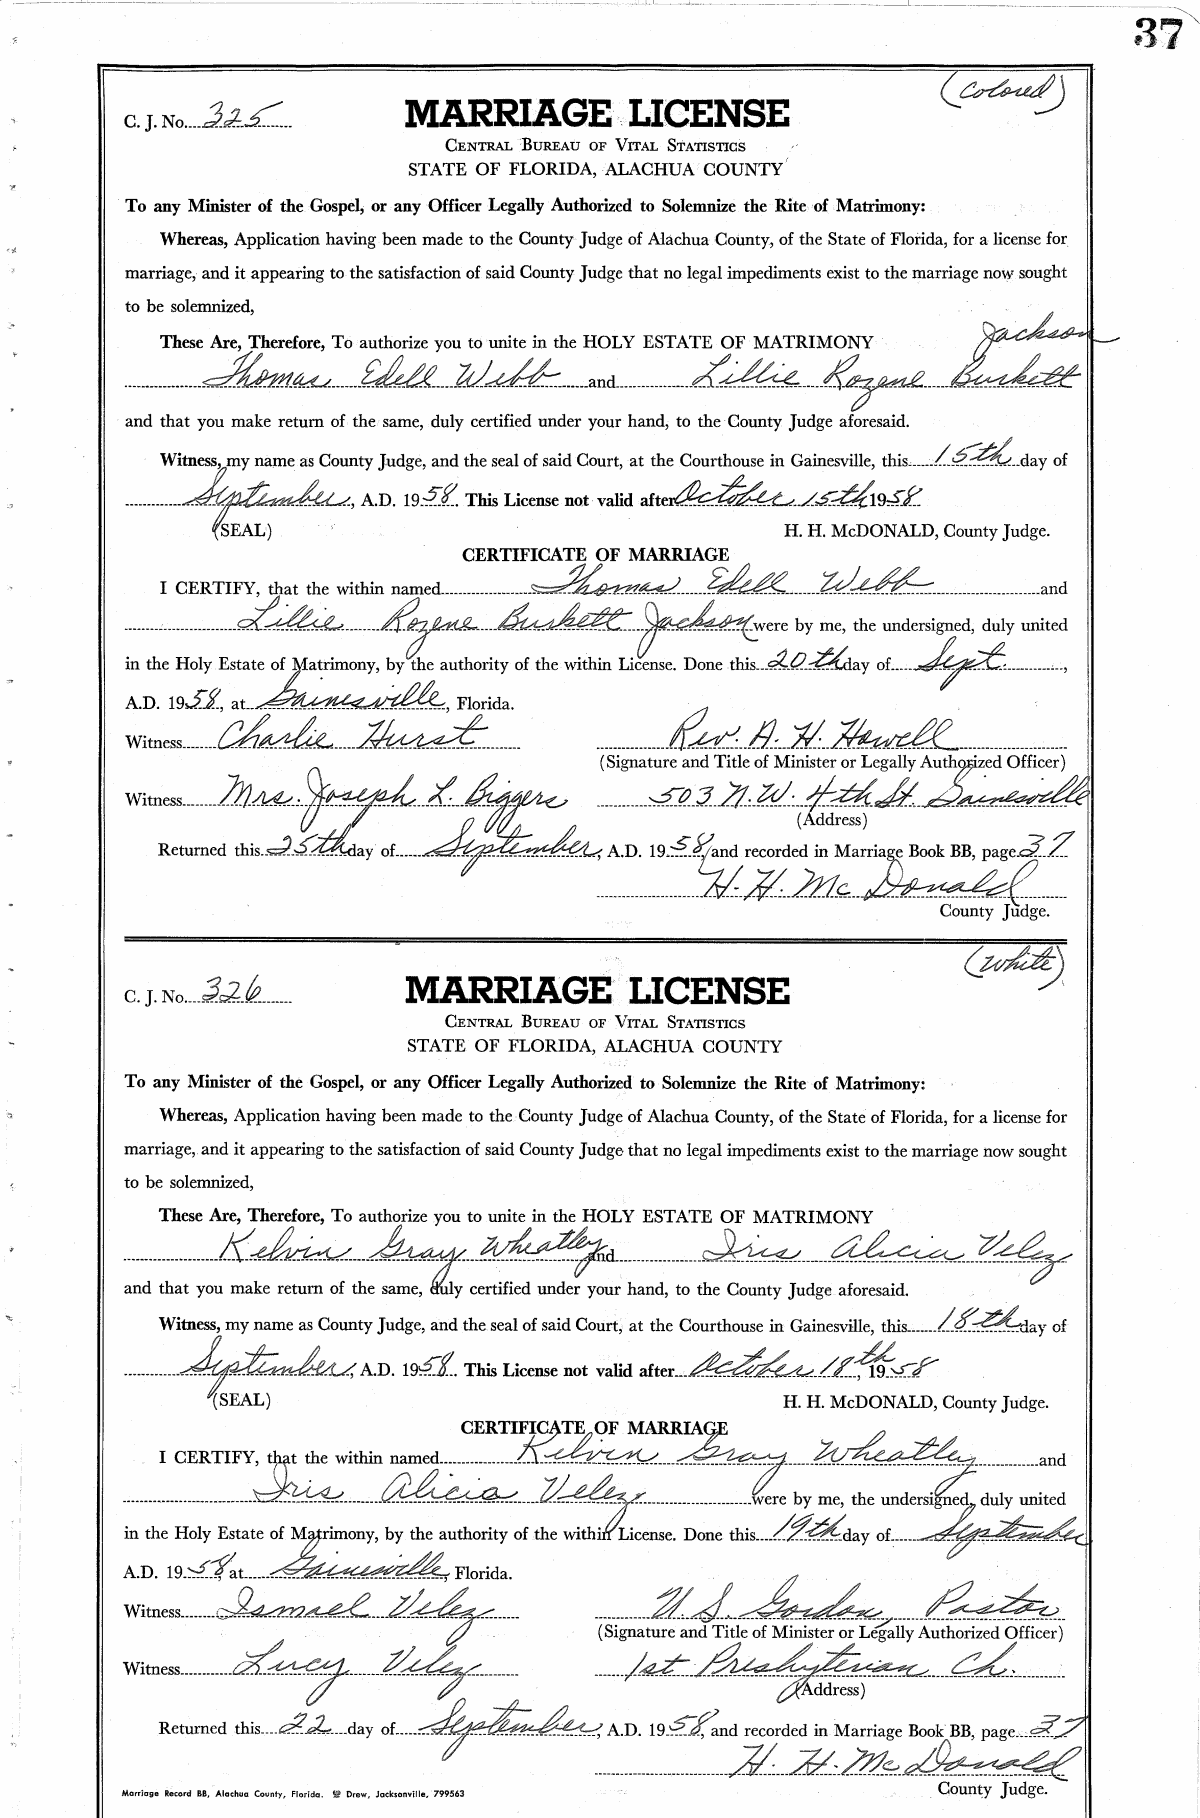 37
(Colored)
C. J. No. 325
MARRIAGE LICENSE
CENTRAL BUREAU OF VITAL STATISTICS
STATE OF FLORIDA, ALACHUA COUNTY
To any Minister of the Gospel, or any Officer Legally Authorized to Solemnize the Rite of Matrimony:
Whereas, Application having been made to the County Judge of Alachua County, of the State of Florida, for a license for
marriage, and it appearing to the satisfaction of said County Judge that no legal impediments exist to the marriage now sought
to be solemnized,
These Are, Therefore, To authorize you to unite in the HOLY ESTATE OF MATRIMONY Jackson
Thomas Edell Webb and Lillie Rozene Burkett
and that you make return of the same, duly certified under your hand, to the County Judge aforesaid.
Witness, my name as County Judge, and the seal of said Court, at the Courthouse in Gainesville, this 15th day of
September, A.D. 1958. This License not valid after October 15th 1958
(SEAL) H. H. McDONALD, County Judge.
CERTIFICATE OF MARRIAGE
I CERTIFY, that the within named Thomas Edell Webb and
Lillie Rozene Burkett Jackson were by me, the undersigned, duly united
in the Holy Estate of Matrimony, by the authority of the within License. Done this 20th day of Sept.,
A.D. 1958, at Gainesville, Florida.
Witness Charlie Hurst Rev. A. H. Howell
(Signature and Title of Minister or Legally Authorized Officer)
Witness Mrs. Joseph L. Biggers 503 N.W. 4th St. Gainesville
(Address)
Returned this 25th day of September, A.D. 1958, and recorded in Marriage Book BB, page 37
H. H. McDonald
County Judge.
(White)
C. J. No. 326
MARRIAGE LICENSE
CENTRAL BUREAU OF VITAL STATISTICS
STATE OF FLORIDA, ALACHUA COUNTY
To any Minister of the Gospel, or any Officer Legally Authorized to Solemnize the Rite of Matrimony:
Whereas, Application having been made to the County Judge of Alachua County, of the State of Florida, for a license for
marriage, and it appearing to the satisfaction of said County Judge that no legal impediments exist to the marriage now sought
to be solemnized,
These Are, Therefore, To authorize you to unite in the HOLY ESTATE OF MATRIMONY
Kelvin Gray Wheatley and Iris Alicia Velez
and that you make return of the same, duly certified under your hand, to the County Judge aforesaid.
Witness, my name as County Judge, and the seal of said Court, at the Courthouse in Gainesville, this 18th day of
September, A.D. 1958. This License not valid after October 18th, 1958
(SEAL) H. H. McDONALD, County Judge.
CERTIFICATE OF MARRIAGE
I CERTIFY, that the within named Kelvin Gray Wheatley and
Iris Alicia Velez were by me, the undersigned, duly united
in the Holy Estate of Matrimony, by the authority of the within License. Done this 19th day of September
A.D. 1958, at Gainesville, Florida.
Witness Ismael Velez U. S. Gordon, Pastor
(Signature and Title of Minister or Legally Authorized Officer)
Witness Lucy Velez 1st Presbyterian Ch.
(Address)
Returned this 22 day of September, A.D. 1958, and recorded in Marriage Book BB, page 37
H. H. McDonald
County Judge.
Marriage Record BB, Alachua County, Florida. Drew, Jacksonville, 799563